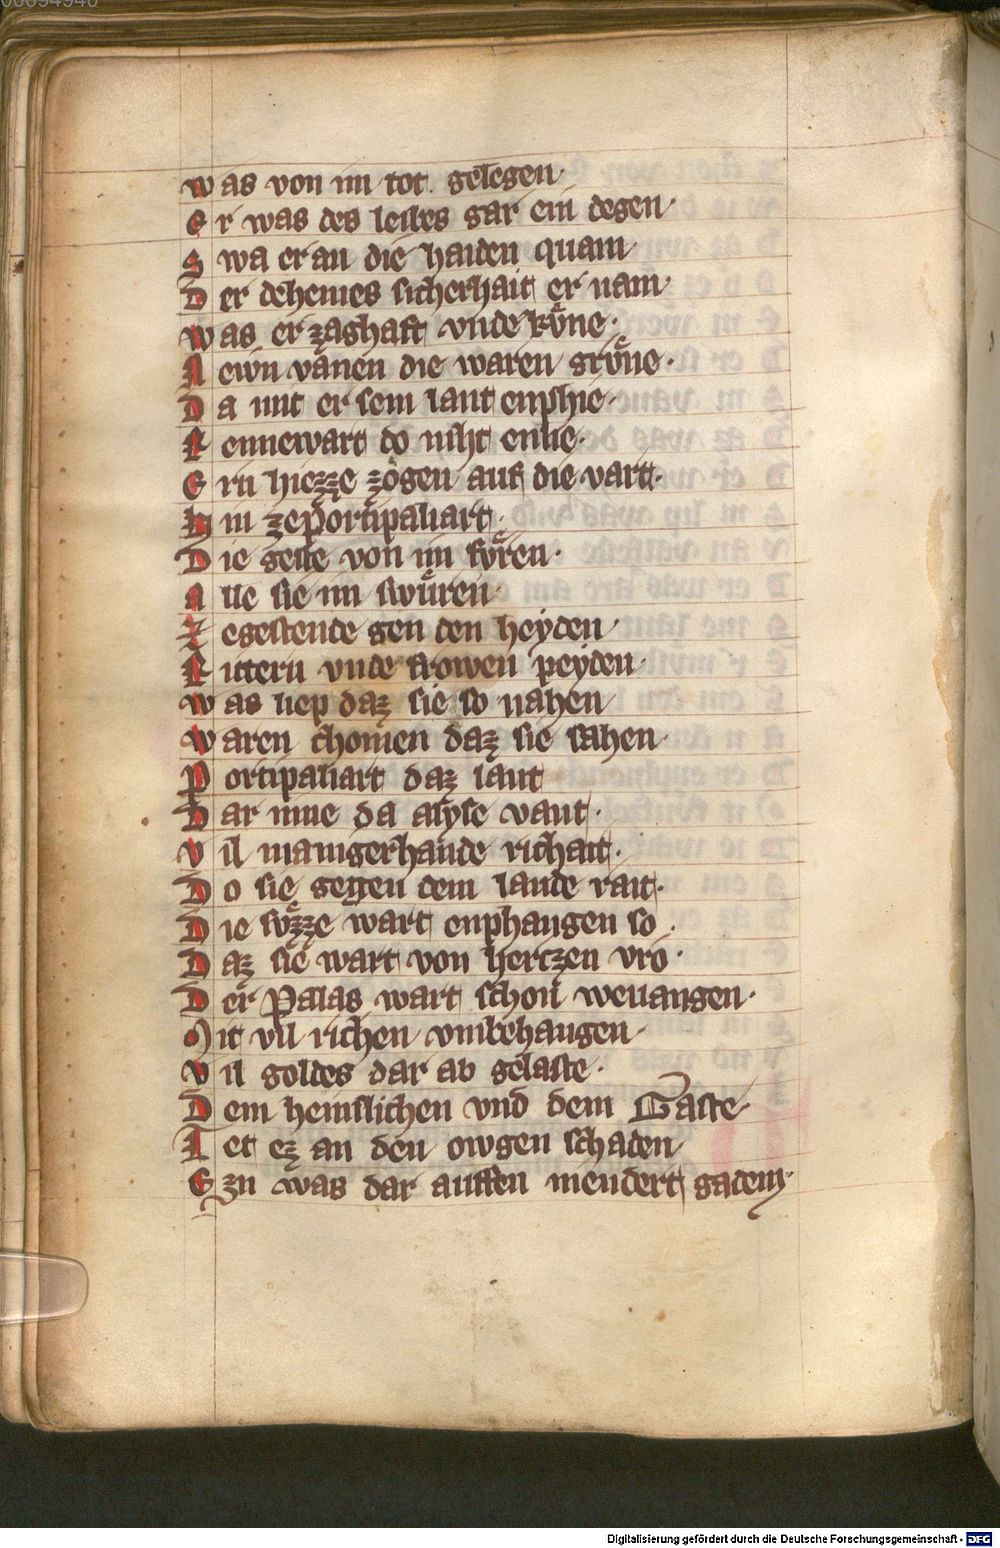 00094946
was von im tot gelegen·
Er was des leibes gar ein degen·
Swa er an die haiden quam
Der deheines sicherhait er nam·
was er zaghaft vnde kv̊ne·
Newn vanen die waren grv̊ne·
Da mit er sein lant enphie·
Rennewart do niht enlie·
Ern hiezze zogen auf die vart·
Hin ze portipaliart·
Die geste von im fv̊ren·
Alle sie im swůren·
Zegestende gen den heyden·
Rittern vnde frowen peyden·
was liep daz sie so nahen
waren chomen daz sie sahen·
Portipaliart daz lant
Dar inne da alyse vant·
Vil manigerhande richait·
Do sie gegen dem lande rait·
Die sv̊zze wart enphangen so·
Daz sie wart von hertzen vro·
Der Palas wart schon wevangen·
Mit vil richen vmbehangen·
Vil goldes dar ab gelaste·
Dem heimlichen vnd dem Gaste·
Tet ez an den owgen schaden·
Ezn was dar auffen niendert gadem·
Digitalisierung gefördert durch die Deutsche Forschungsgemeinschaft - DFG